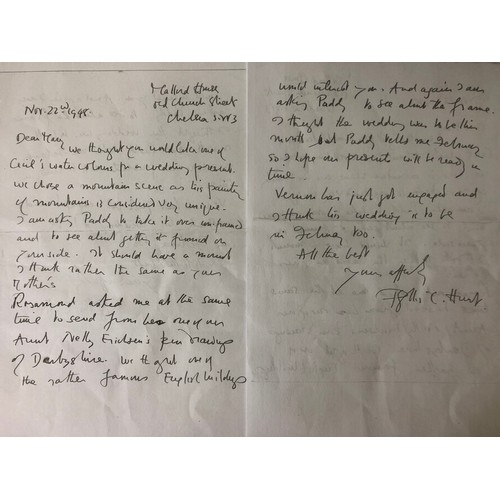 Mallord House
Old Church Street
Nov. 22nd 1948. Chelsea S.W3
Dear Mary
We thought you would like one of
Cecil's water colours for a wedding present.
We chose a mountain scene as his painting
of mountains is considered very unique.
I am asking Paddy to take it over un-framed
and to see about getting it framed on
your side. It should have a mount
I think rather the same as your
Mother's
Rosamond asked me at the same
time to send from her one of our
Aunt Nelly Erichsen's pen drawings
of Derbyshire. We thought one of
the rather famous English buildings
would interest you. And again I am
asking Paddy to see about the frame.
I thought the wedding was to be this
month but Paddy tells me February
so I hope our presents will be ready in
time.
Vernon has just got engaged and
I think his wedding is to be
in February too.
All the best
Yours affectly
Phyllis C. Hunt